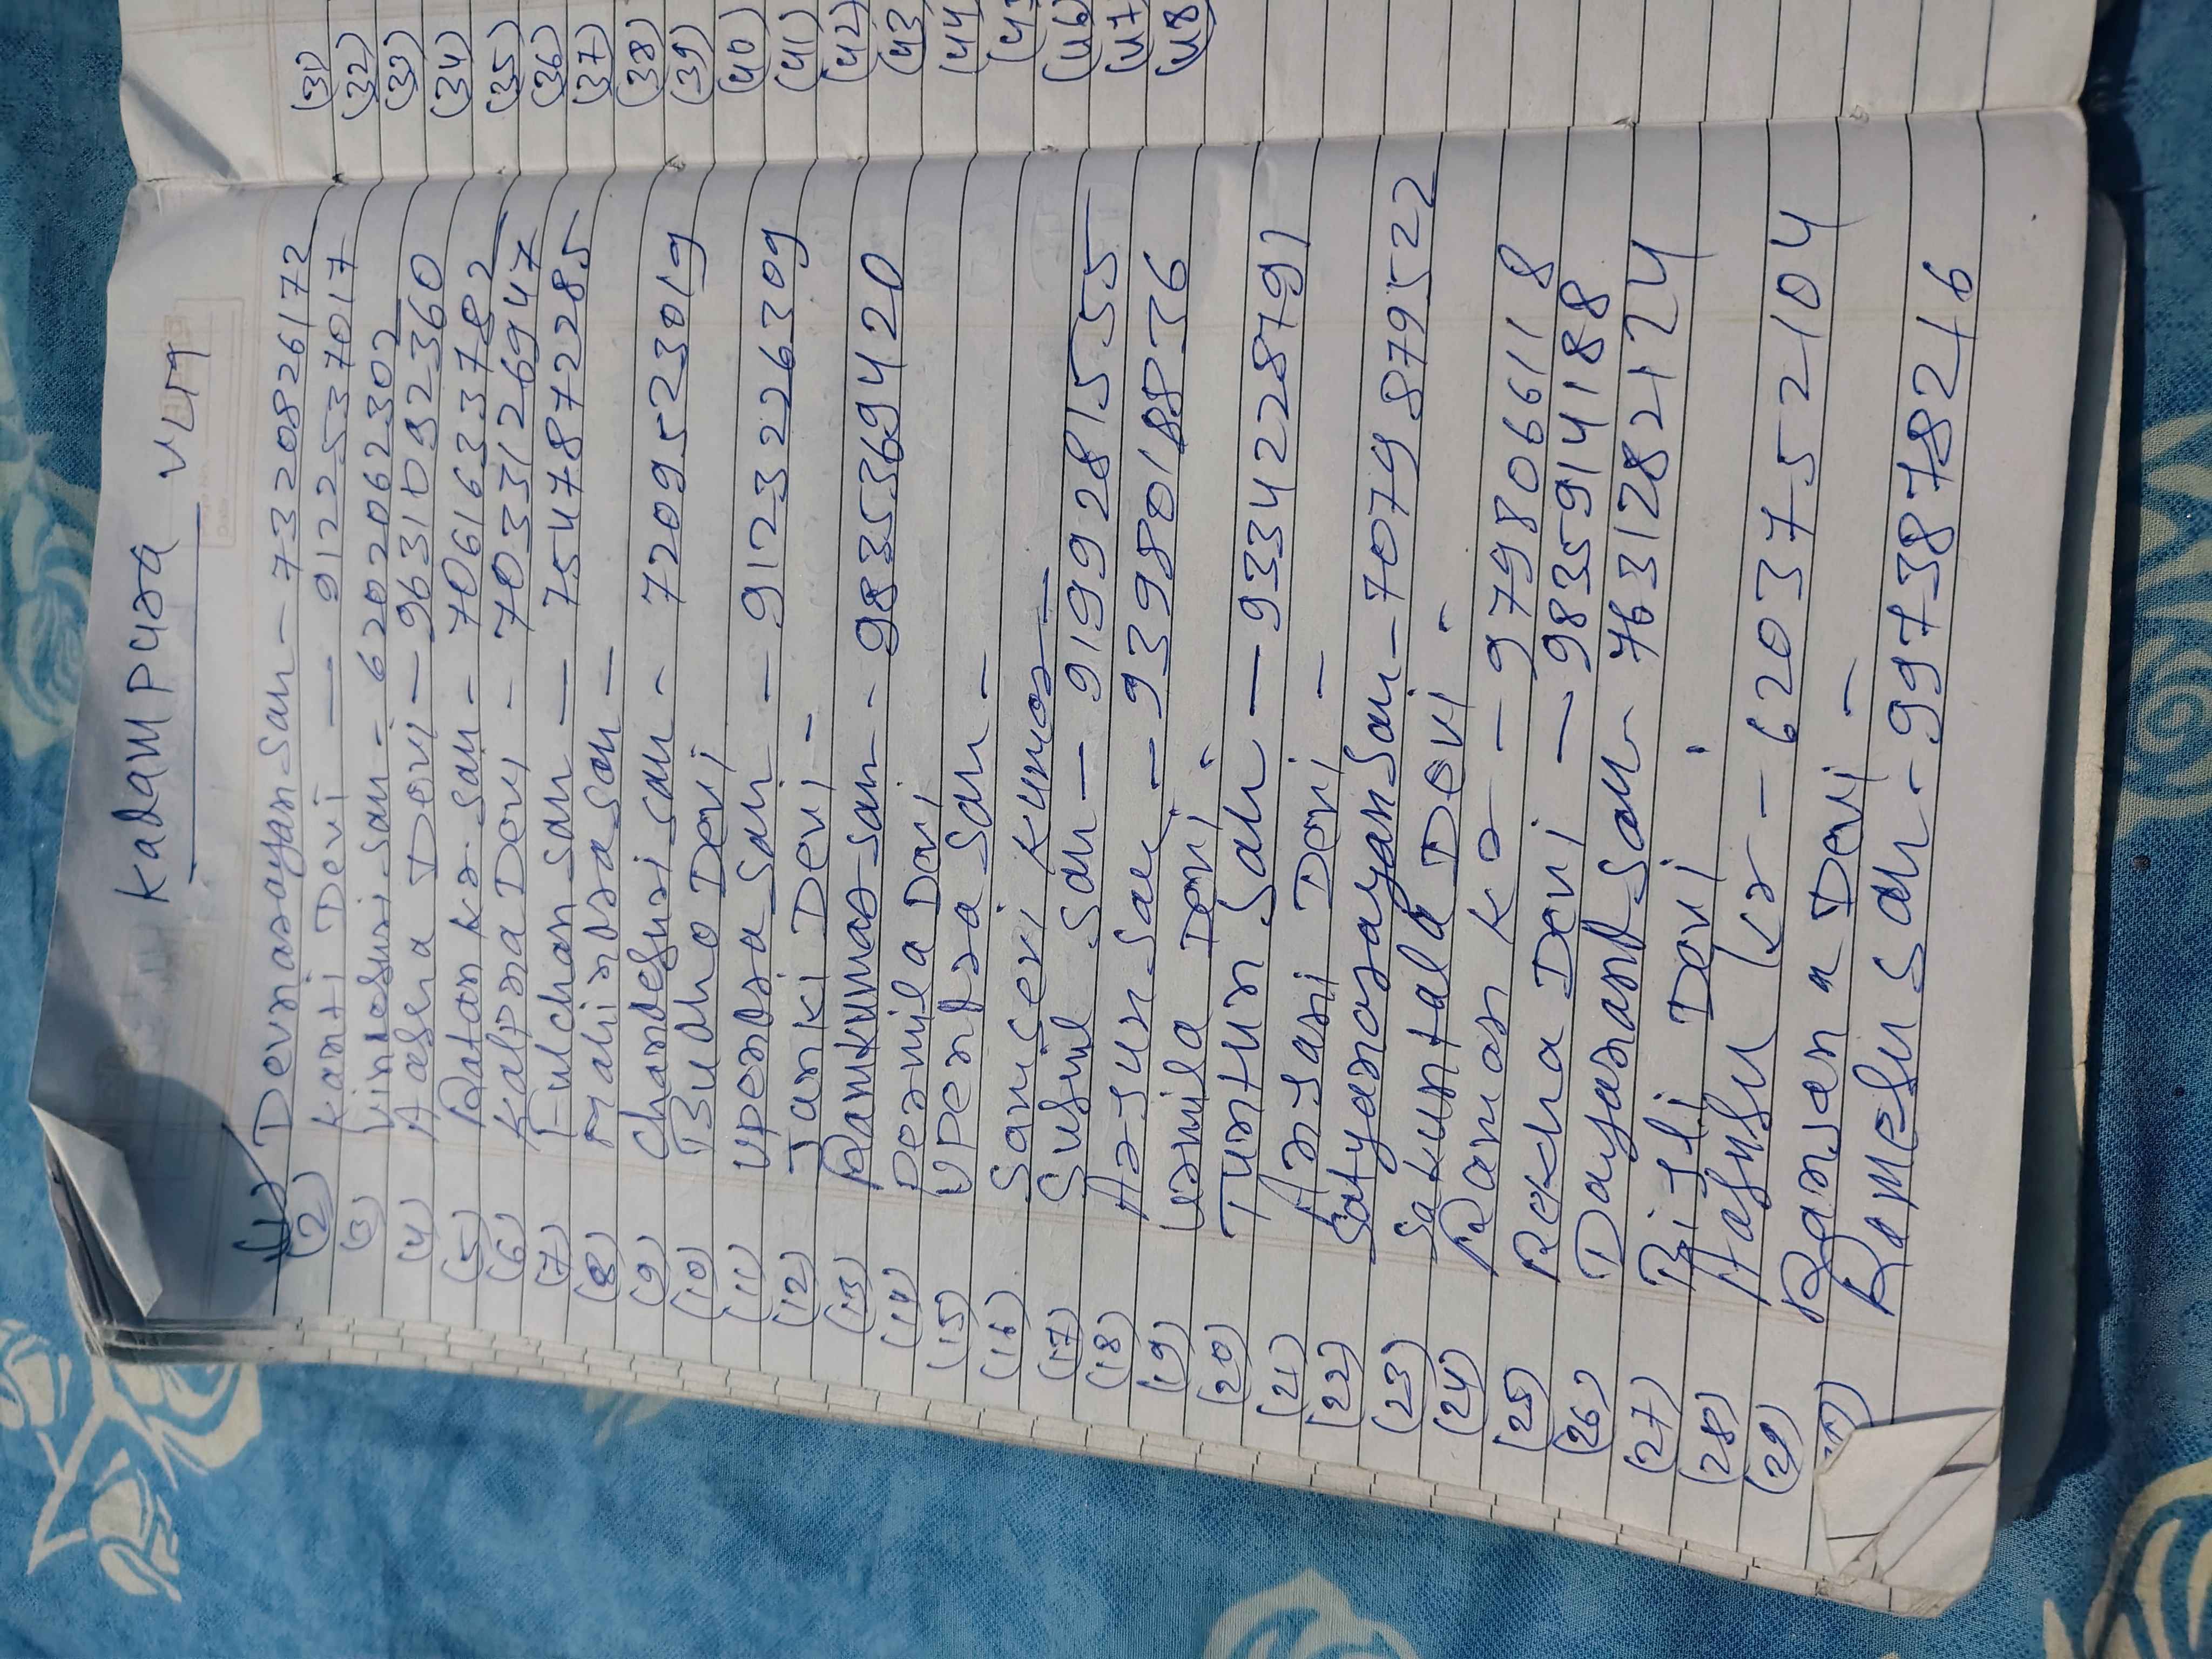 Kadampura VLM
(1) Devnarayan Sau - 7320826172
(2) Kanti Devi - 9122537017
(3) Vindesuri Sau - 6202062302
(4) Asha Devi - 9631092360
(5) Ratan Kr. Sau - 7061633782
(6) Kalpna Devi - 7033126947
(7) Fulchan Sau - 7547872285
(8) Mahindra Sau -
(9) Chandesuri Sau - 7209523019
(10) Budho Devi
(11) Upendra Sau - 9123226309
(12) Janki Devi -
(13) Ramkumar Sau - 9835369420
(14) Permila Devi
(15) Upendra Sau -
(16) Sanjeev Kumar -
(17) Susmil Sau - 9199281555
(18) Arjun Sau - 9398018836
(19) Urmila Devi -
(20) Tuntun Sau - 9334228791
(21) Anjani Devi -
(22) Satyanarayan Sau - 7079879522
(23) Sakuntala Devi -
(24) Raman Kr - 979806618
(25) Rekha Devi - 9835914188
(26) Dayanand Sau - 7631282124
(27) Devi
(28) Kr - 6203752104
(29) Devi -
Ramesh Sau - 9973878216
(31)
(32)
(33)
(34)
(35)
(36)
(37)
(38)
(39)
(40)
(41)
(42)
(43
(44
(46)
(47)
(48)